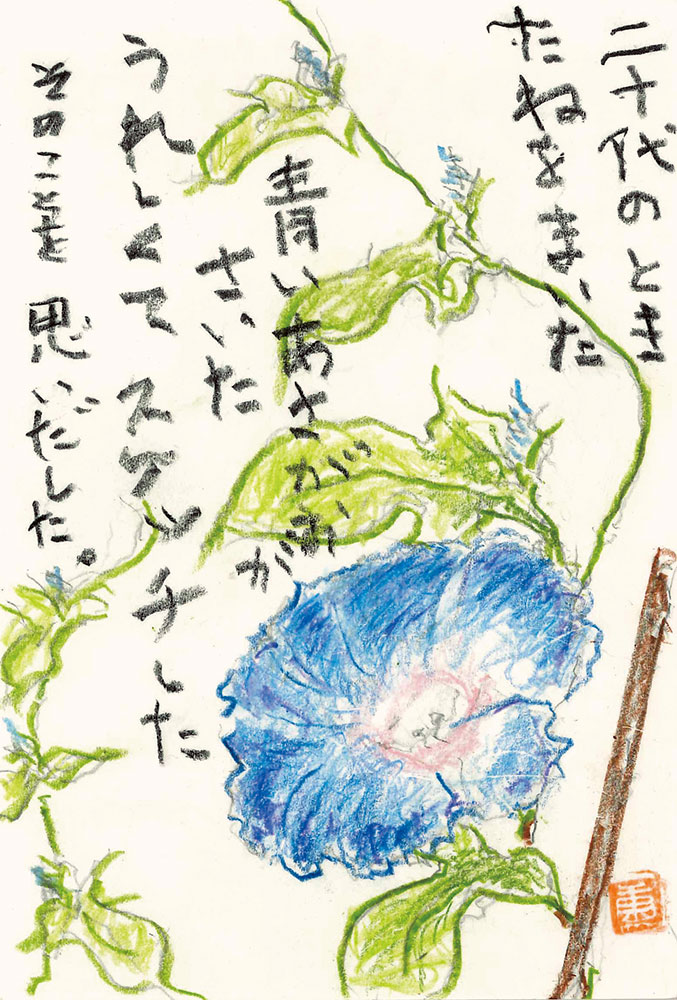 二十代のとき
たねをまいた
青いあさがおが
さいた
うれしくて スケッチした
その日のことを 思いだした。